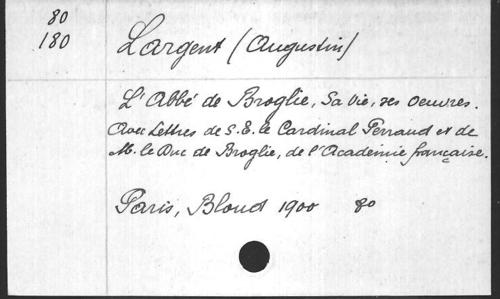 80
180
Largent (Augustin)
L'Abbé de Broglie, Sa Vie, ses Oeuvres.
Avec Lettres de S.E. le Cardinal Perraud et de
M. le Duc de Broglie, de l'Académie française.
Paris, Bloud 1900 80